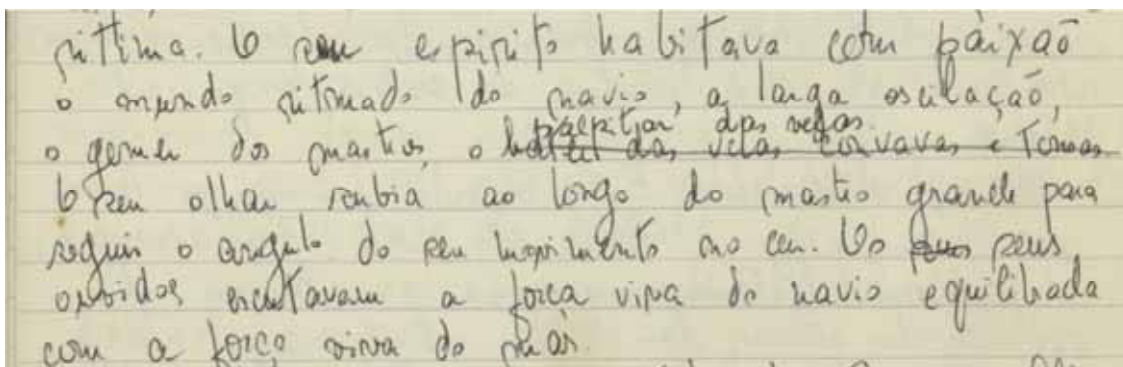 rítima. O seu espírito habitava com paixão
o mundo ritmado do navio, a larga oscilação,
o gemer dos mastros, o palpitar das velas.
bater das velas curvavas e tensas
O seu olhar subia ao longo do mastro grande para
seguir o angulo do seu movimento no ceu. Os seus seus
ouvidos escutavam a força viva do navio equilibrada
com a força viva do mar.